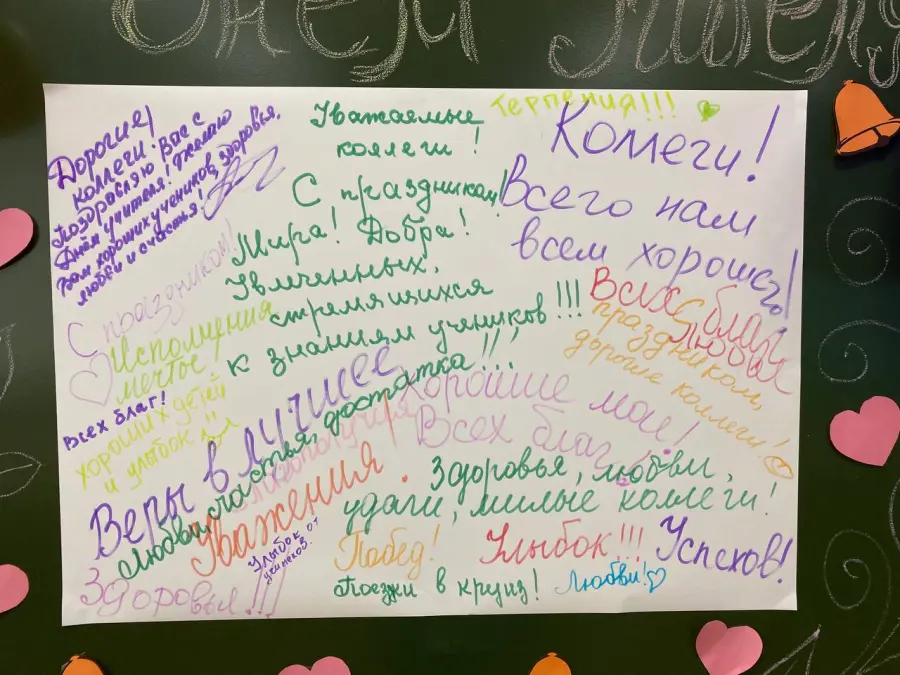 Днём
Дорогие
коллеги. Вас с
Поздравляю
Днём учителя! Желаю
Вам хороших учеников, здоровья,
любви и счастья!
Уважаемые
коллеги!
С праздником!
Мира! Добра!
Увлеченных,
стремящихся
к знаниям учеников!!!
Любви, счастья, достатка!!!
Терпения!!!
Коллеги!
Всего нам
всем хорошего!
Всех благ
Любви
С праздником,
дорогие коллеги!
С праздником!
Исполнения
мечтое!
Всех благ!
хороших детей
и улыбок !!
Веры в лучшее
Благополучия
Уважения.
Хорошие мои!
Всех благ
Здоровья, любви,
удачи, милые коллеги!
Улыбок от
учеников.
Побед!
Улыбок!!!
Успехов!
Здоровья!!!
Поезжи в круиз!
Любви!